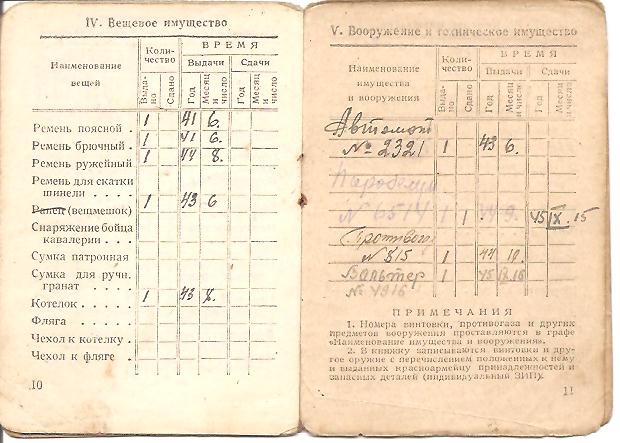 IV. Вещевое имущество
Наименование вещей
Количество
ВРЕМЯ
Выдачи
Сдачи
Выдано
Сдано
Год
Месяц и число
Год
Месяц и число
Ремень поясной . 1 41 6.
Ремень брючный . 1 41 6.
Ремень ружейный 1 44 8.
Ремень для скатки
шинели . . . .
Ранец (вещмешок) 1 43 6
Снаряжение бойца
кавалерии . . . .
Сумка патронная
Сумка для ручн.
гранат . . . .
Котелок . . . . 1 43 8.
Фляга . . . . .
Чехол к котелку .
Чехол к фляге .
10
V. Вооружение и техническое имущество
Наименование имущества и вооружения
Количество
ВРЕМЯ
Выдачи
Сдачи
Выдано
Сдано
Год
Месяц и число
Год
Месяц и число
Автомат
№ 2321 1 43 6.
№ 6514 1 1 44 9. 45 IX. 15
Противог.
№ 815 1 44 10.
Вальтер 1 45
№ 4916
ПРИМЕЧАНИЯ
1. Номера винтовки, противогаза и других
предметов вооружения проставляются в графе
«Наименование имущества и вооружения».
2. В книжку записываются винтовки и дру-
гое оружие с перечислением положенных к нему
и выданных красноармейцу принадлежностей и
запасных деталей (индивидуальный ЗИП).
11